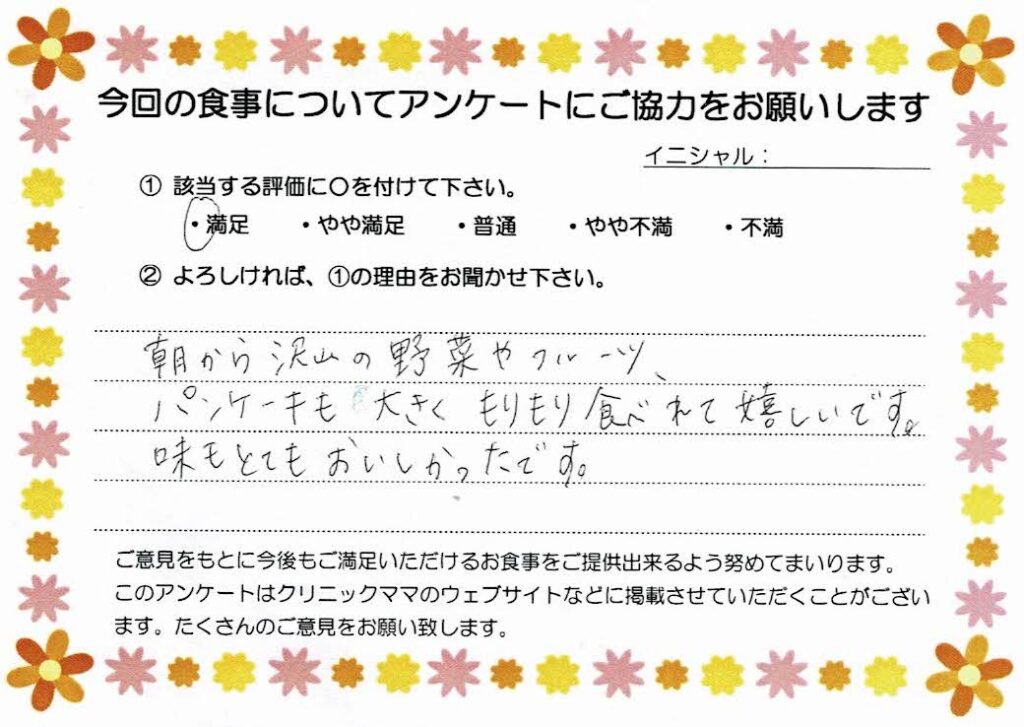 今回の食事についてアンケートにご協力をお願いします
イニシャル：
① 該当する評価に〇を付けて下さい。
・満足　・やや満足　・普通　・やや不満　・不満
② よろしければ、①の理由をお聞かせ下さい。
朝から沢山の野菜やフルーツ、
パンケーキも大きくもりもり食べれて嬉しいです。
味もとてもおいしかったです。
ご意見をもとに今後もご満足いただけるお食事をご提供出来るよう努めてまいります。
このアンケートはクリニックママのウェブサイトなどに掲載させていただくことがござい
ます。たくさんのご意見をお願い致します。